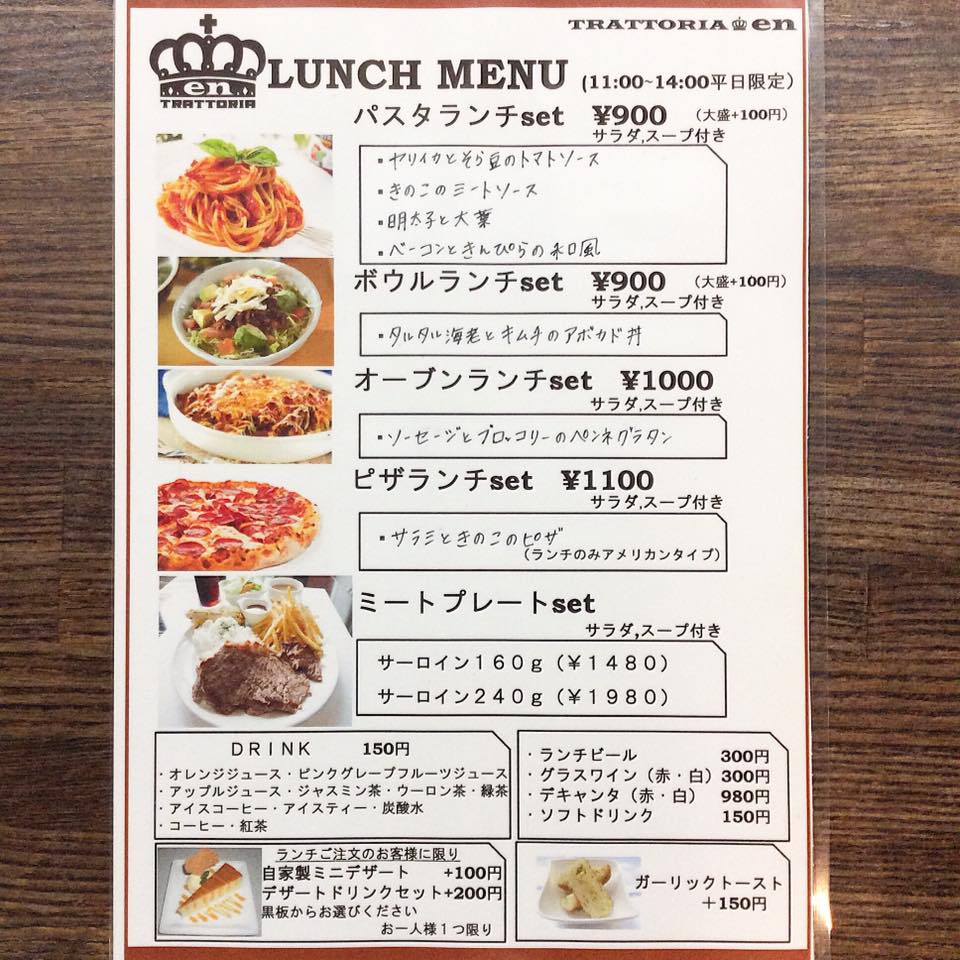 TRATTORIA en
en
TRATTORIA
LUNCH MENU (11:00~14:00平日限定)
パスタランチset ¥900 (大盛+100円)
サラダ,スープ付き
・ヤリイカとそら豆のトマトソース
・きのこのミートソース
・明太子と大葉
・ベーコンときんぴらの和風
ボウルランチset ¥900 (大盛+100円)
サラダ,スープ付き
・タルタル海老とキムチのアボカド丼
オーブンランチset ¥1000
サラダ,スープ付き
・ソーセージとブロッコリーのペンネグラタン
ピザランチset ¥1100
サラダ,スープ付き
・サラミときのこのピザ
(ランチのみアメリカンタイプ)
ミートプレートset
サラダ,スープ付き
サーロイン160g(¥1480)
サーロイン240g(¥1980)
DRINK 150円
・オレンジジュース・ピンクグレープフルーツジュース
・アップルジュース・ジャスミン茶・ウーロン茶・緑茶
・アイスコーヒー・アイスティー・炭酸水
・コーヒー・紅茶
・ランチビール 300円
・グラスワイン(赤・白)300円
・デキャンタ(赤・白) 980円
・ソフトドリンク 150円
ランチご注文のお客様に限り
自家製ミニデザート +100円
デザートドリンクセット+200円
黒板からお選びください
お一人様1つ限り
ガーリックトースト
+150円